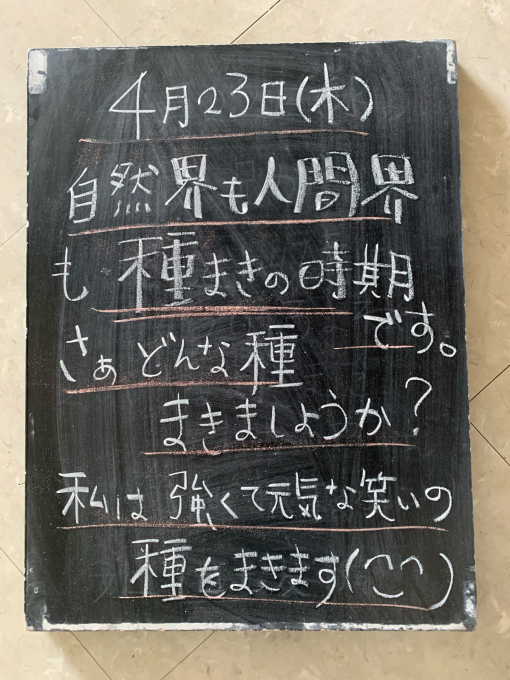 4月23日(木)
自然界も人間界
も種まきの時期
です。
さぁどんな種
まきましょうか?
私は強くて元気な笑いの
種をまきます(^^)